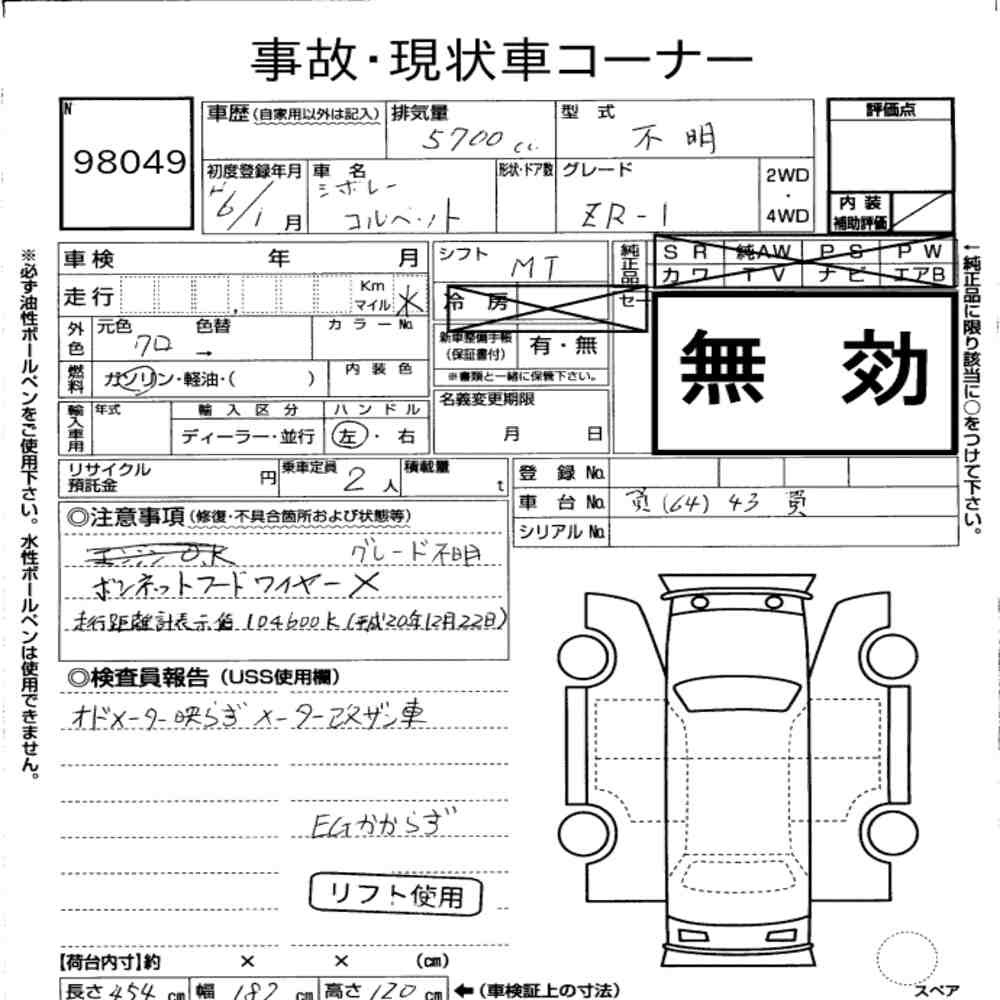 事故・現状車コーナー
N
98049
車歴(自家用以外は記入)
排気量
5700cc
型式
不明
評価点
初度登録年月
H6/1月
車名
シボレー
コルベット
形状・ドア数
グレード
ZR-1
2WD
・
4WD
内装
補助評価
車検 年 月
シフト
MT
純正品
セー
SR 純AW PS PW
カワ TV ナビ エアB
走行
Km
マイル
冷房
無効
外色
元色 色替
クロ →
カラーNo.
新車整備手帳
(保証書付)
有・無
※書類と一緒に保管下さい。
燃料
ガソリン・軽油・( )
内装色
名義変更期限
月 日
輸入車用
年式
輸入区分
ディーラー・並行
ハンドル
左・右
リサイクル
預託金
円
乗車定員
2人
積載量
t
登録No.
車台No.
頁(64)43頁
シリアルNo.
◎注意事項(修復・不具合箇所および状態等)
エンジンOK グレード不明
ボンネットフードワイヤー×
走行距離計表示値104600K(平成20年12月22日)
◎検査員報告(USS使用欄)
オドメーター映らず メーター改ザン車
EGかからず
リフト使用
【荷台内寸】約 × × (cm)
長さ454cm 幅182cm 高さ120cm ←(車検証上の寸法)
スペア
※必ず油性ボールペンをご使用下さい。水性ボールペンは使用できません。
←純正品に限り該当に○をつけて下さい。